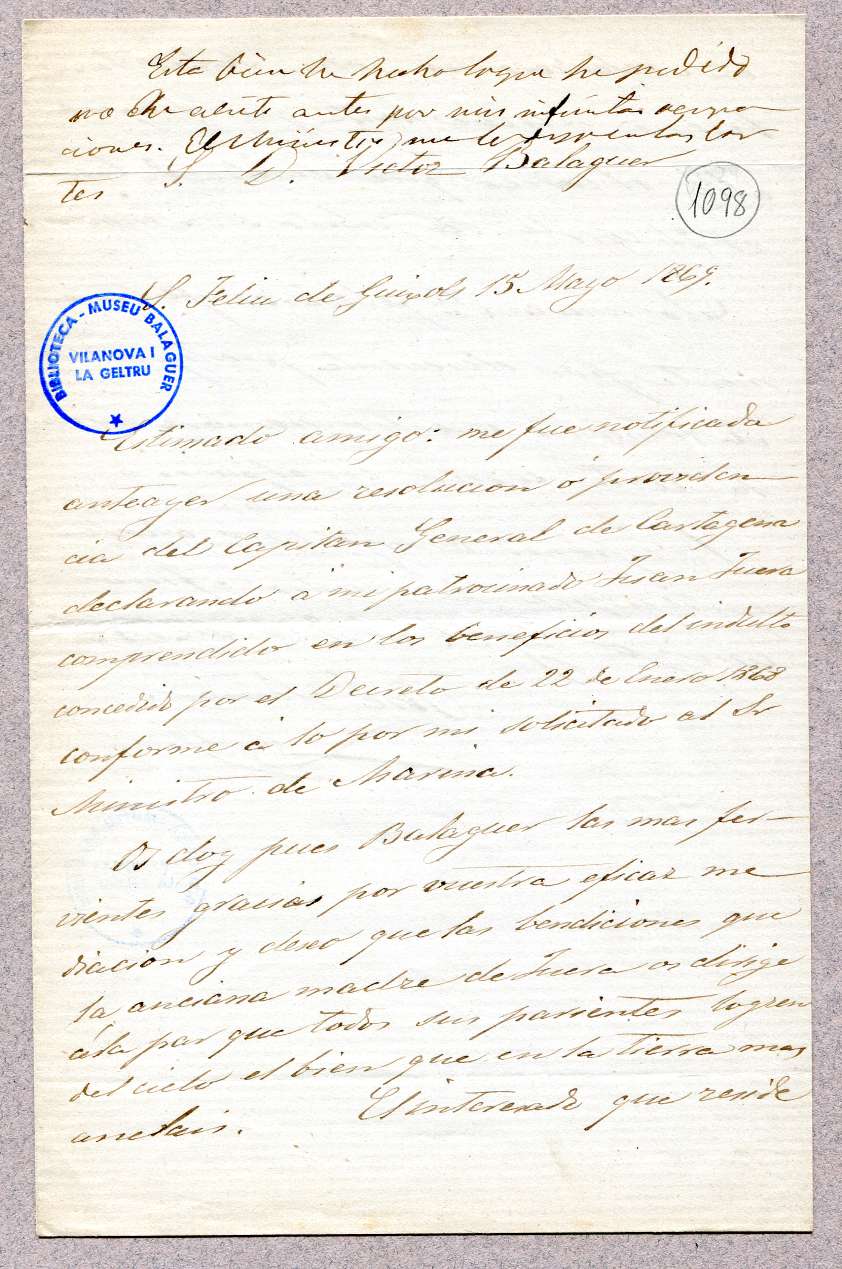 Esta bien he hecho lo que he pedido
no he antes por mis infinitas ocupa
ciones. El Ministro me lo las Cor
tes
S. D. Victor Balaguer
1098
S. Feliu de Guixols 15 Mayo 1869.
BIBLIOTECA - MUSEU BALAGUER
VILANOVA I
LA GELTRU
Estimado amigo: me fue notificada
anteayer una resolucion ó providen-
cia del Capitan General de Cartagena
declarando á mi patrocinado Juan
comprendido en los beneficios del indulto
concedido por el Decreto de 22 de Enero 1868
conforme á lo por mi solicitado al Sr
Ministro de Marina.
Os doy pues Balaguer las mas fer-
vientes gracias por vuestra eficaz me
diacion y deseo que las bendiciones que
la anciana madre de os dirige
á la par que todos sus parientes logren
del cielo el bien que en la tierra mas
anelais. El interesado que reside